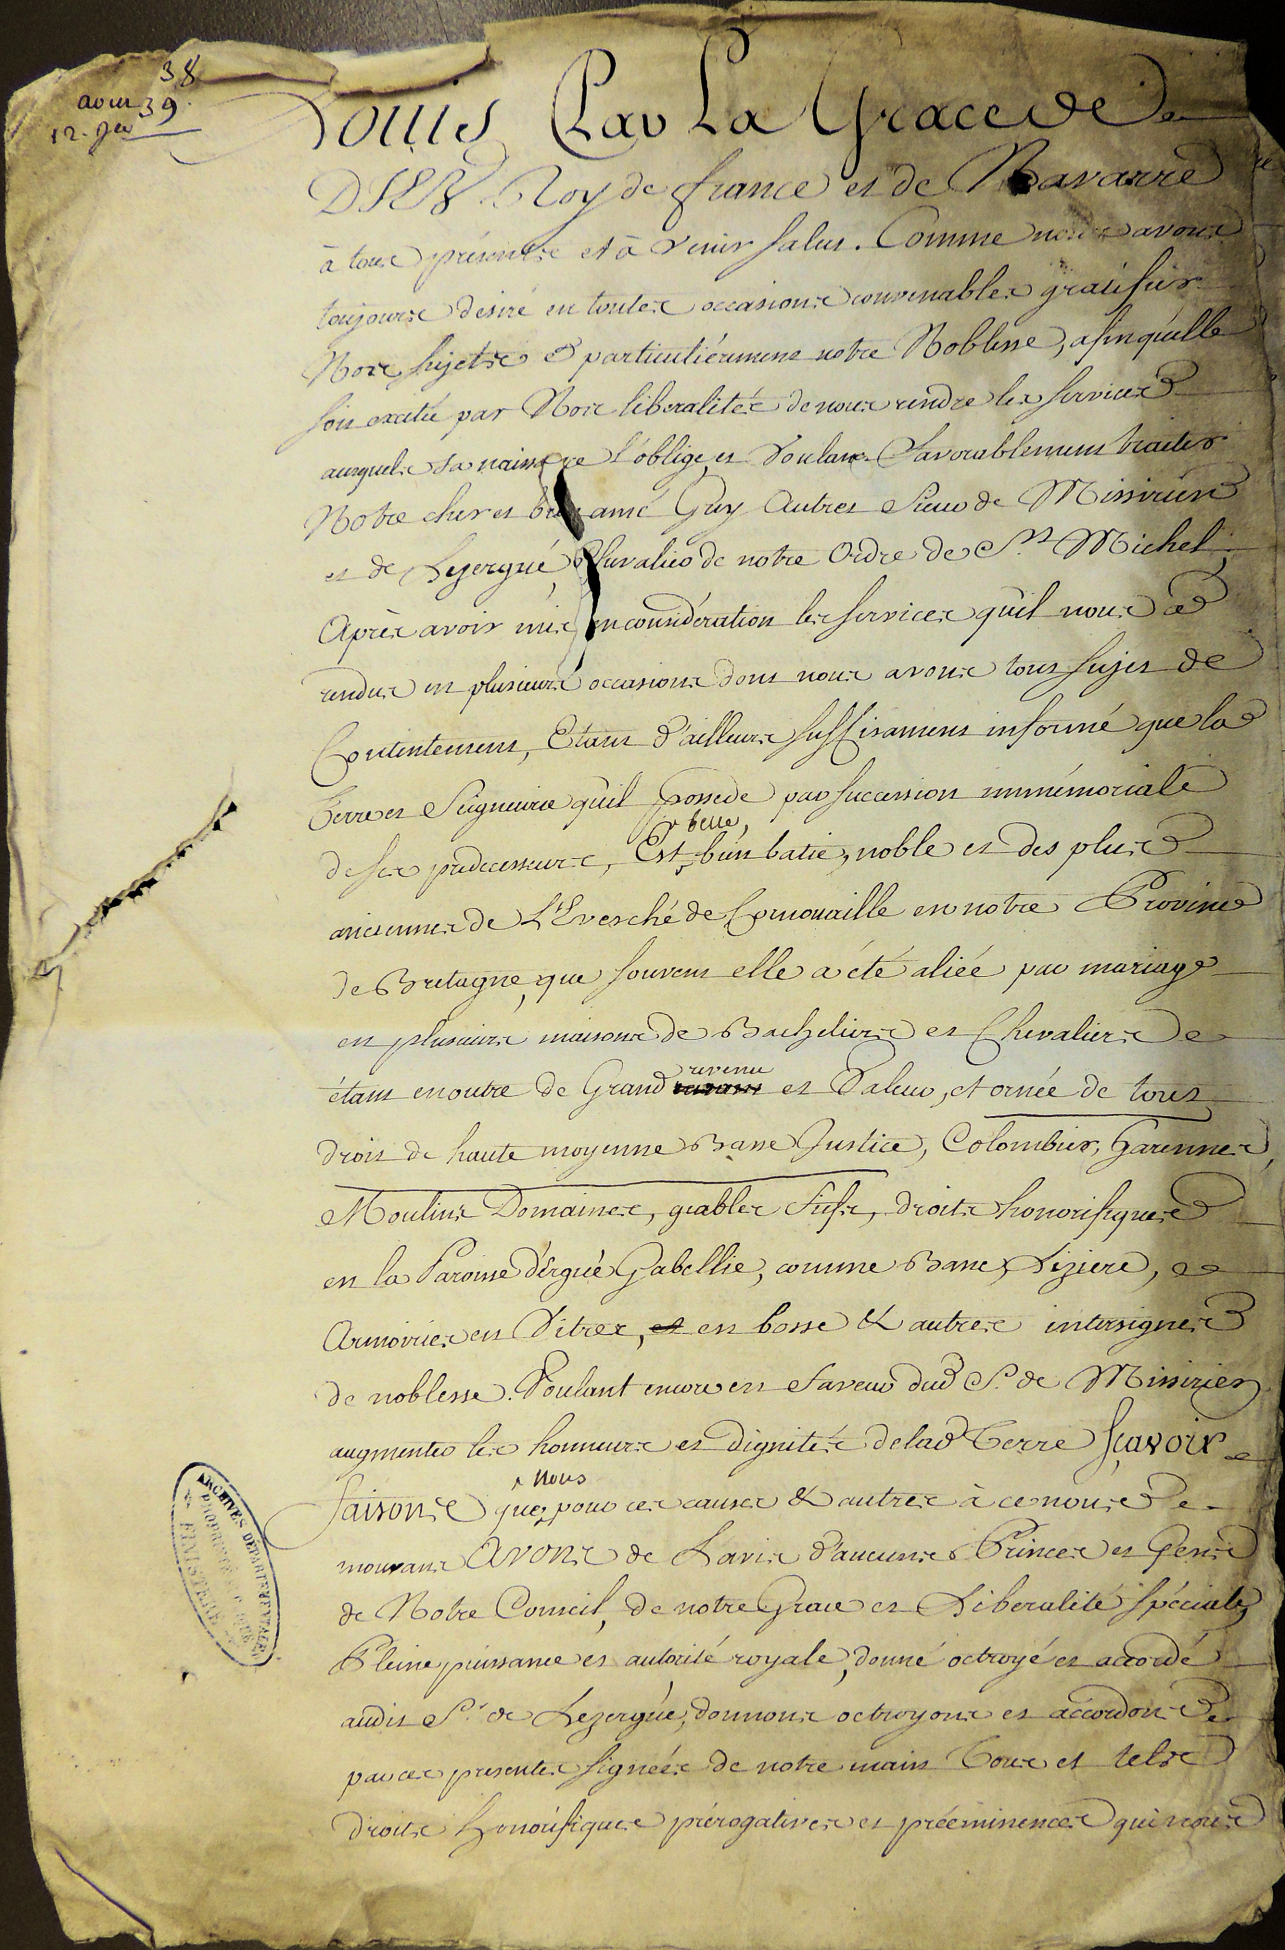 38
39
Louis Par La Grace de
DIEU Roy de france et de Navarre
à tous présents et à venir salut. Comme nous avons
toujours desiré en toutes occasions convenables gratifier
Nos sujets & particuliérement notre Noblesse, afin qu'elle
soit excitée par Nos liberalités de nous rendre les services
auxquels sa naissance l'oblige, et Voulant favorablement traiter
Notre cher et bien amé Guy Autret Sieur de Missirien
et de Lezergué, Chevalier de notre Ordre de St Michel,
Après avoir mis en considération les services qu'il nous a
rendus en plusieurs occasions dont nous avons tout sujet de
Contentement, Etant d'ailleurs suffisament informé que la
Terre et Seigneurie qu'il possede par succession immémoriale
belle,
de ses predecesseurs, Est bien batie, noble et des plus
anciennes de L'Evesché de Cornouaille en notre Province
de Bretagne, que souvent elle a été aliée par mariage
en plusieurs maisons de Bacheliers et Chevaliers
revenu
étant en outre de Grand et Valeur, et ornée de tout
droit de haute moyenne Basse Justice, Colombier, Garennes,
Moulins Domaines, grables fiefs, droits honorifiques
en la Paroisse d'Ergué Gabellic, comme Banc, Liziere,
Armoiries en Vitres, et en bosse & autres intersignes
de noblesse. Voulant encore en faveur dud S. de Missirien
augmenter les honneurs et dignités de lad Terre sçavoir
nous
faisons que, pour ces causes & autres à ce nous
mouvans Avons de L'avis d'aucuns Princes et Gens
de Notre Conseil, de notre Grace et Liberalité spéciale,
Pleine puissance et autorité royale, donné octroyé et accordé
audit Sr de Lezergué, donnons octroyons et accordons
par ces presentes signées de notre main Tous et tels
droits honorifiques prérogatives et prééminences qui nous
ARCHIVES DÉPARTEMENTALES
PROPRIÉTÉ PUBLIQUE
FINISTÈRE